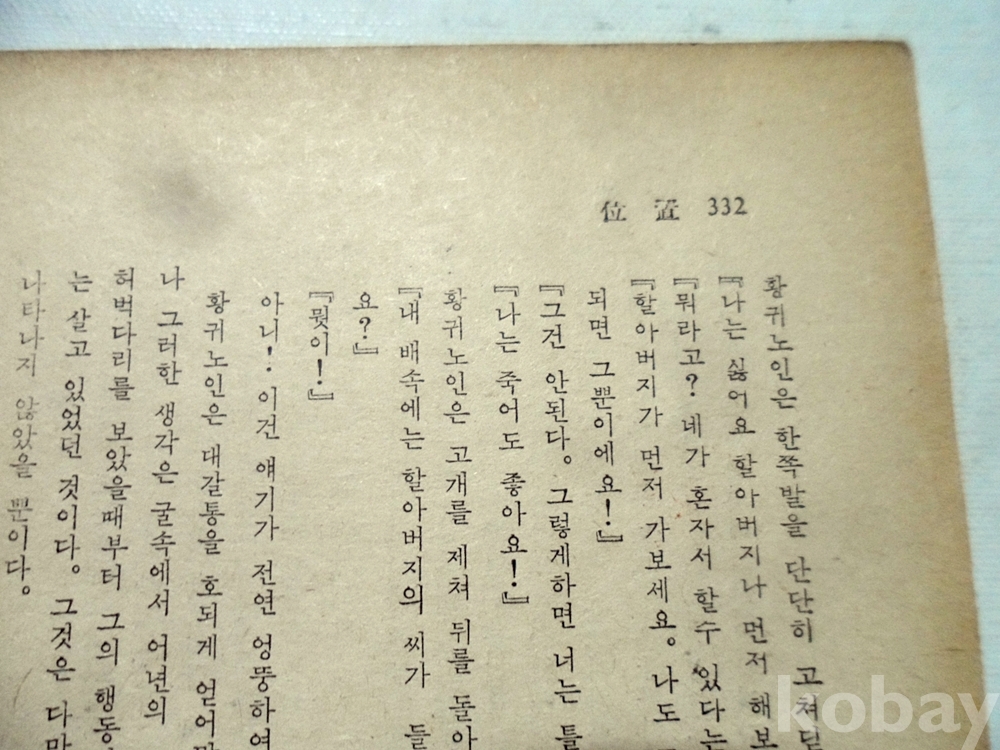 位置 332
황귀노인은 한쪽발을 단단히 고쳐딛
『나는 싫어요 할아버지나 먼저 해보
『뭐라고? 네가 혼자서 할수 있다는
『할아버지가 먼저 가보세요. 나도
되면 그뿐이에요!』
『그건 안된다. 그렇게하면 너는 틀
『나는 죽어도 좋아요!』
황귀노인은 고개를 제쳐 뒤를 돌아
『내 배속에는 할아버지의 씨가 들
요?』
『뭣이!』
아니! 이건 얘기가 전연 엉뚱하여
황귀노인은 대갈통을 호되게 얻어맞
나 그러한 생각은 굴속에서 어년의
허벅다리를 보았을때부터 그의 행동
는 살고 있었던 것이다. 그것은 다만
나타나지 않았을 뿐이다.
kobay